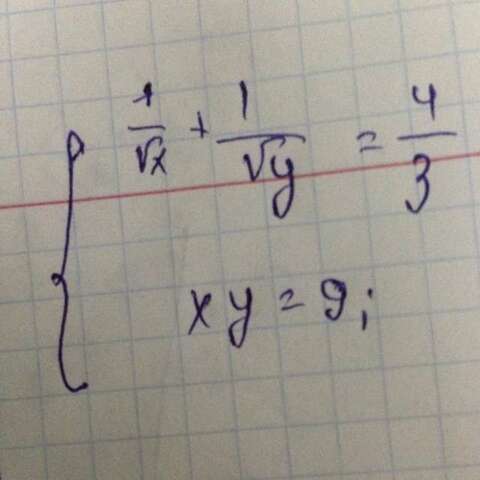 1/√x + 1/√y = 4/3
xy = 9;